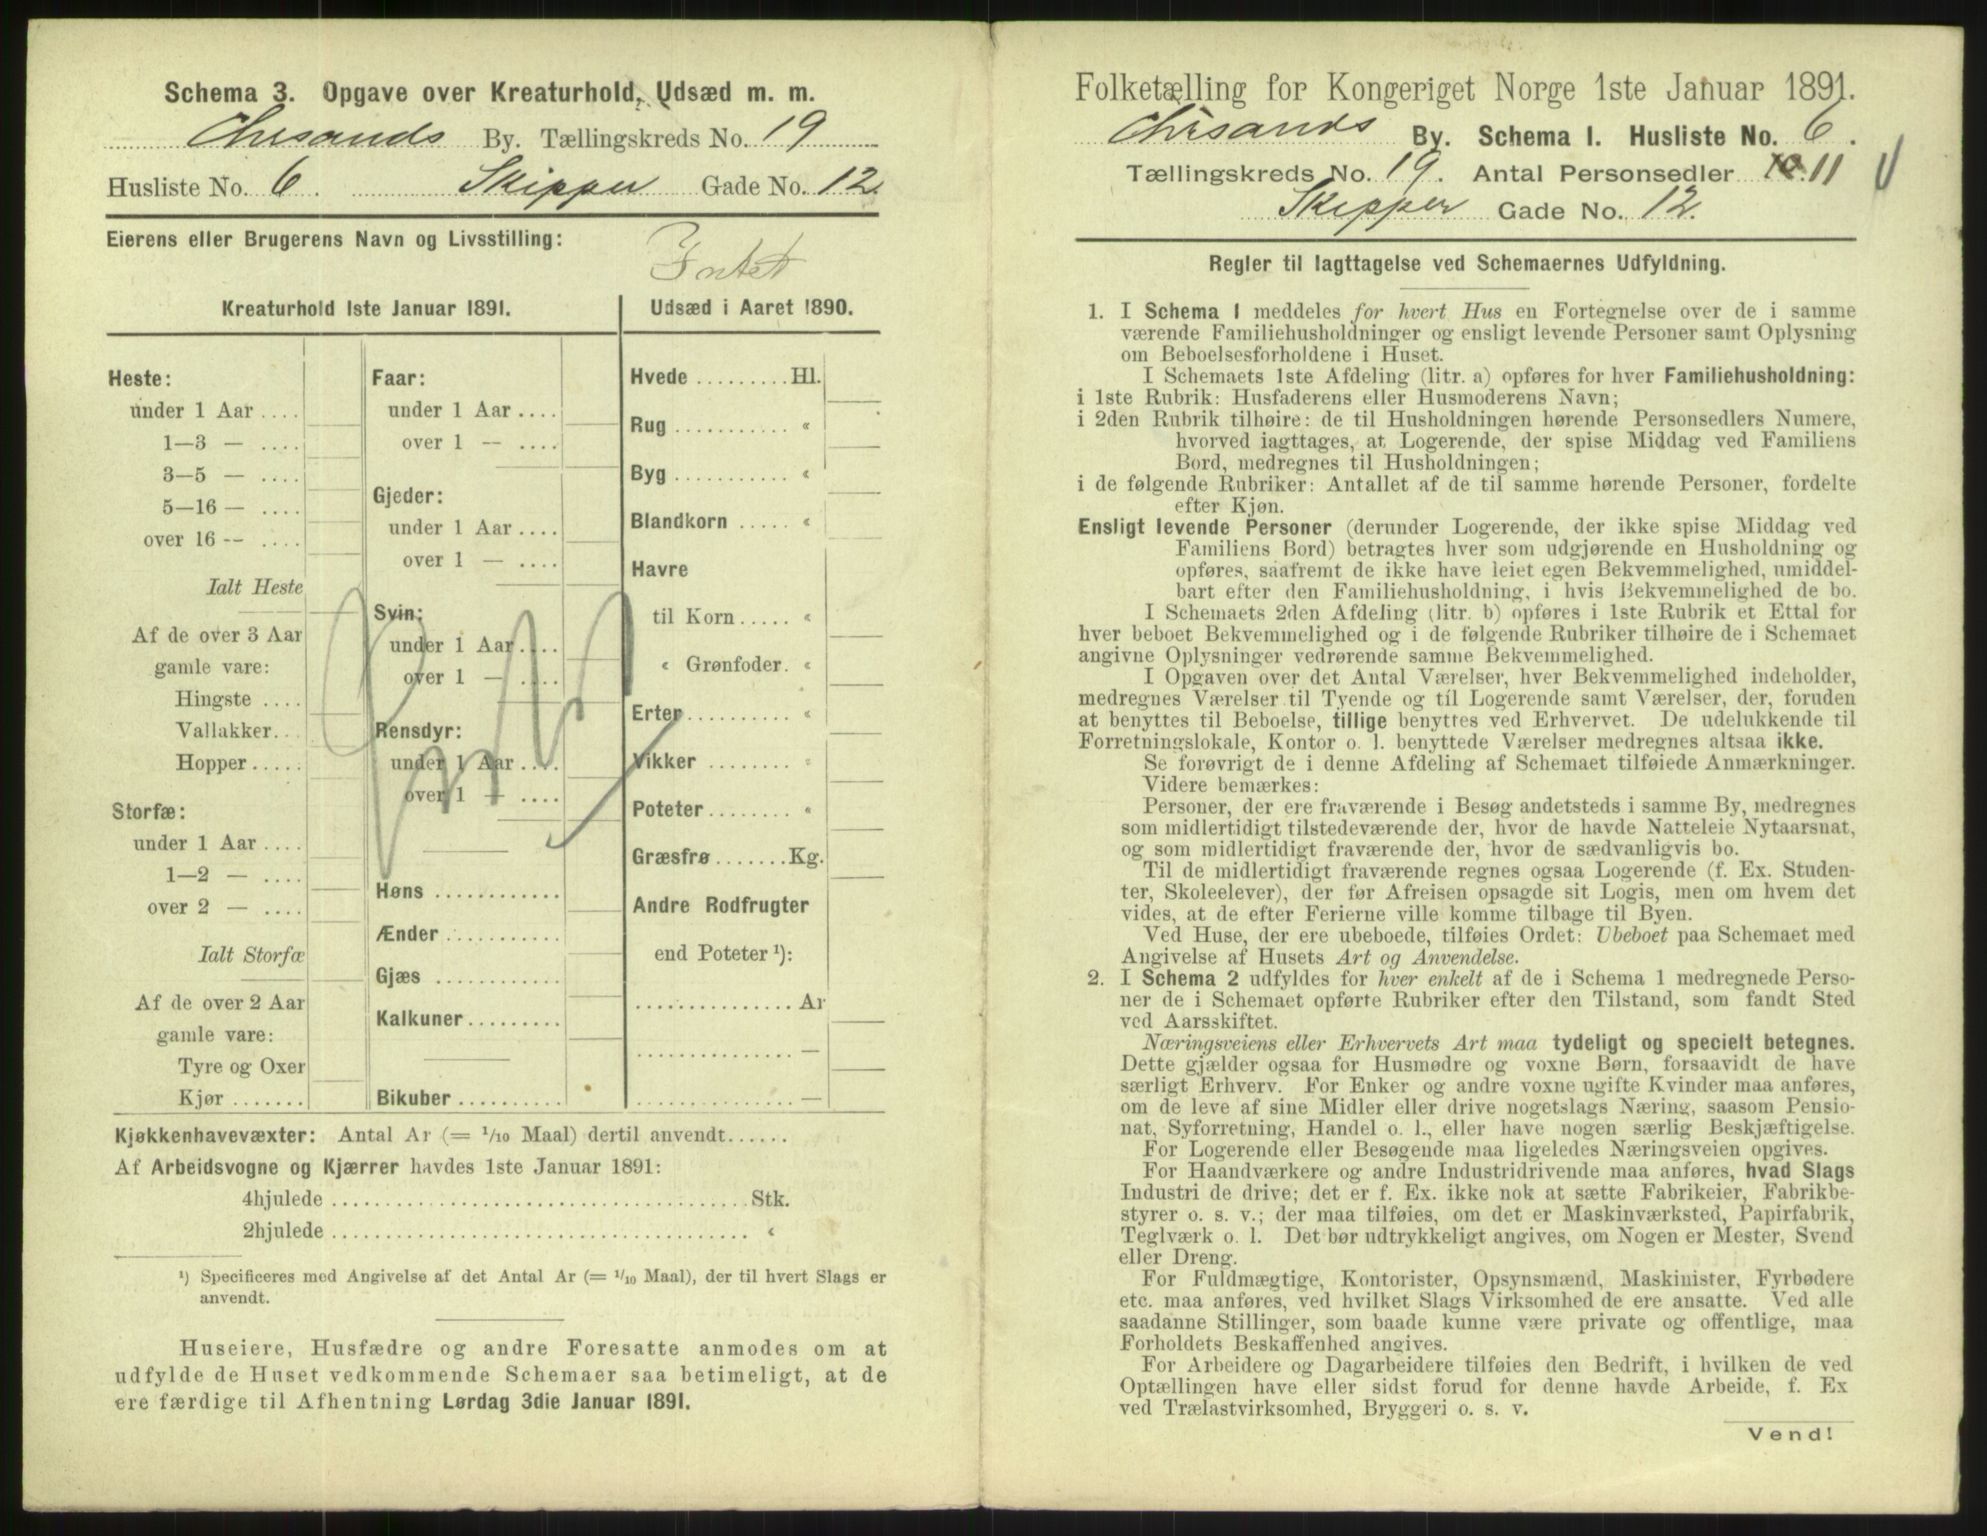 Schema 3. Opgave over Kreaturhold, Udsæd m. m.
Chrsands By. Tællingskreds No. 19
Husliste No. 6. Skipper Gade No. 12.
Eierens eller Brugerens Navn og Livsstilling:
Intet
Kreaturhold 1ste Januar 1891.
Heste:
under 1 Aar ....
1—3 — ....
3—5 — ....
5—16 — ....
over 16 -- ....
Ialt Heste
Af de over 3 Aar
gamle vare:
Hingste ....
Vallakker...
Hopper .....
Storfæ:
under 1 Aar ....
1—2 — ....
over 2 — ....
Ialt Storfæ
Af de over 2 Aar
gamle vare:
Tyre og Oxer
Kjør .......
Faar:
under 1 Aar ....
over 1 — ....
Gjeder:
under 1 Aar ....
over 1 — ....
Svin:
under 1 Aar ....
over 1 — ....
Rensdyr:
under 1 Aar ....
over 1 — ....
Høns ............
Ænder ...........
Gjæs ............
Kalkuner.........
Bikuber ..........
Udsæd i Aaret 1890.
Hvede .........Hl.
Rug ........... «
Byg ........... «
Blandkorn ..... «
Havre
til Korn ..... «
« Grønfoder. «
Erter.......... «
Vikker ........ «
Poteter........ «
Græsfrø.......Kg.
Andre Rodfrugter
end Poteter ¹):
............... Ar
............... —
............... —
Kjøkkenhavevæxter: Antal Ar (= 1/10 Maal) dertil anvendt......
Af Arbeidsvogne og Kjærrer havdes 1ste Januar 1891:
4hjulede ..................................... Stk.
2hjulede ..................................... «
¹) Specificeres med Angivelse af det Antal Ar (= 1/10 Maal), der til hvert Slags er
anvendt.
Huseiere, Husfædre og andre Foresatte anmodes om at
udfylde de Huset vedkommende Schemaer saa betimeligt, at de
ere færdige til Afhentning Lørdag 3die Januar 1891.
Folketælling for Kongeriget Norge 1ste Januar 1891.
Chrsands By. Schema 1. Husliste No. 6.
Tællingskreds No. 19. Antal Personsedler 10. 11
Skipper Gade No. 12.
Regler til Iagttagelse ved Schemaernes Udfyldning.
1. I Schema 1 meddeles for hvert Hus en Fortegnelse over de i samme
værende Familiehusholdninger og ensligt levende Personer samt Oplysning
om Beboelsesforholdene i Huset.
I Schemaets 1ste Afdeling (litr. a) opføres for hver Familiehusholdning:
i 1ste Rubrik: Husfaderens eller Husmoderens Navn;
i 2den Rubrik tilhøire: de til Husholdningen hørende Personsedlers Numere,
hvorved iagttages, at Logerende, der spise Middag ved Familiens
Bord, medregnes til Husholdningen;
i de følgende Rubriker: Antallet af de til samme hørende Personer, fordelte
efter Kjøn.
Ensligt levende Personer (derunder Logerende, der ikke spise Middag ved
Familiens Bord) betragtes hver som udgjørende en Husholdning og
opføres, saafremt de ikke have leiet egen Bekvemmelighed, umiddel-
bart efter den Familiehusholdning, i hvis Bekvemmelighed de bo.
I Schemaets 2den Afdeling (litr. b) opføres i 1ste Rubrik et Ettal for
hver beboet Bekvemmelighed og i de følgende Rubriker tilhøire de i Schemaet
angivne Oplysninger vedrørende samme Bekvemmelighed.
I Opgaven over det Antal Værelser, hver Bekvemmelighed indeholder,
medregnes Værelser til Tyende og til Logerende samt Værelser, der, foruden
at benyttes til Beboelse, tillige benyttes ved Erhvervet. De udelukkende til
Forretningslokale, Kontor o. l. benyttede Værelser medregnes altsaa ikke.
Se forøvrigt de i denne Afdeling af Schemaet tilføiede Anmærkninger.
Videre bemærkes:
Personer, der ere fraværende i Besøg andetsteds i samme By, medregnes
som midlertidigt tilstedeværende der, hvor de havde Natteleie Nytaarsnat,
og som midlertidigt fraværende der, hvor de sædvanligvis bo.
Til de midlertidigt fraværende regnes ogsaa Logerende (f. Ex. Studen-
ter, Skoleelever), der før Afreisen opsagde sit Logis, men om hvem det
vides, at de efter Ferierne ville komme tilbage til Byen.
Ved Huse, der ere ubeboede, tilføies Ordet: Ubeboet paa Schemaet med
Angivelse af Husets Art og Anvendelse.
2. I Schema 2 udfyldes for hver enkelt af de i Schema 1 medregnede Perso-
ner de i Schemaet opførte Rubriker efter den Tilstand, som fandt Sted
ved Aarsskiftet.
Næringsveiens eller Erhvervets Art maa tydeligt og specielt betegnes.
Dette gjælder ogsaa for Husmødre og voxne Børn, forsaavidt de have
særligt Erhverv. For Enker og andre voxne ugifte Kvinder maa anføres,
om de leve af sine Midler eller drive nogetslags Næring, saasom Pensio-
nat, Syforretning, Handel o. l., eller have nogen særlig Beskjæftigelse.
For Logerende eller Besøgende maa ligeledes Næringsveien opgives.
For Haandværkere og andre Industridrivende maa anføres, hvad Slags
Industri de drive; det er f. Ex. ikke nok at sætte Fabrikeier, Fabrikbe-
styrer o. s. v.; der maa tilføies, om det er Maskinværksted, Papirfabrik,
Teglværk o. l. Det bør udtrykkeligt angives, om Nogen er Mester, Svend
eller Dreng.
For Fuldmægtige, Kontorister, Opsynsmænd, Maskinister, Fyrbødere
etc. maa anføres, ved hvilket Slags Virksomhed de ere ansatte. Ved alle
saadanne Stillinger, som baade kunne være private og offentlige, maa
Forholdets Beskaffenhed angives.
For Arbeidere og Dagarbeidere tilføies den Bedrift, i hvilken de ved
Optællingen have eller sidst forud for denne havde Arbeide, f. Ex
ved Trælastvirksomhed, Bryggeri o. s. v.
Vend!